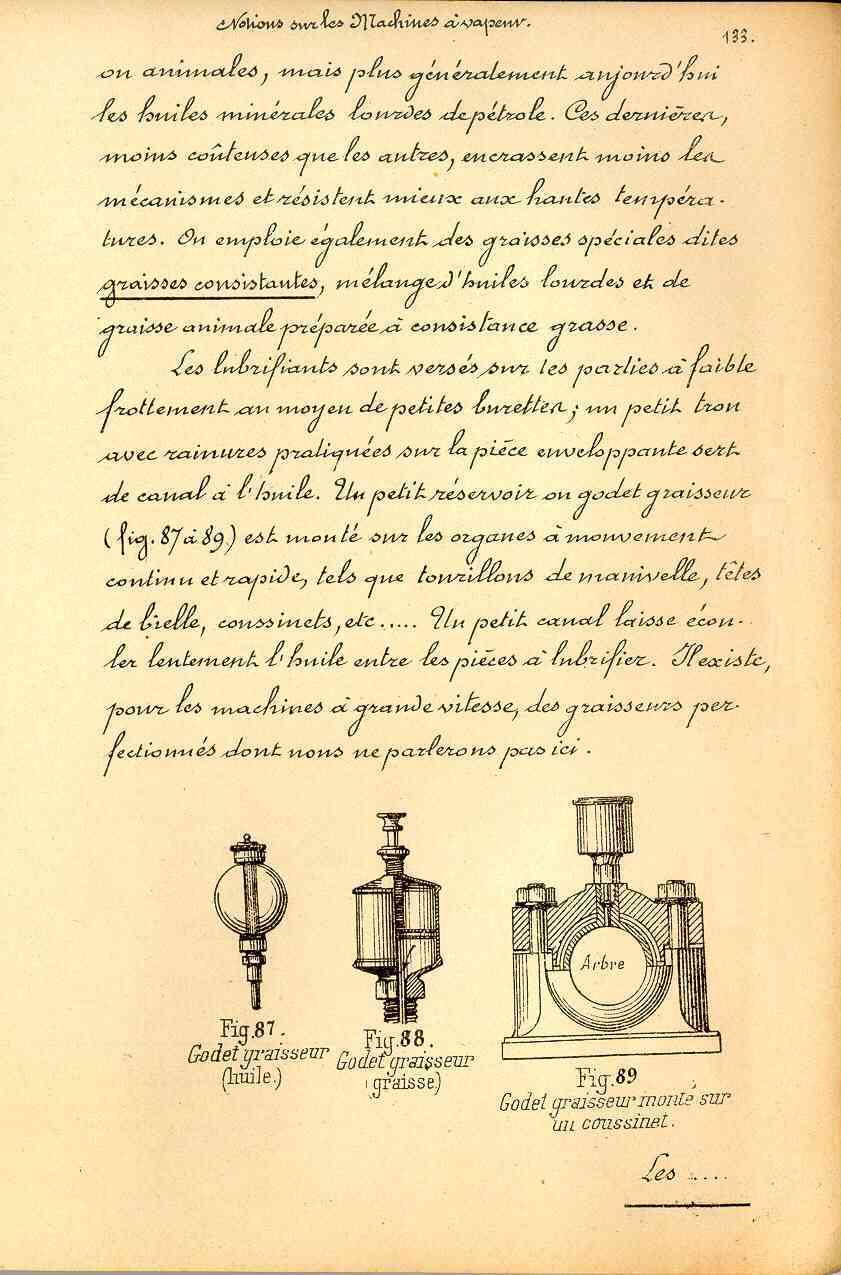 Notions sur les Machines à vapeur.
133.
ou animales, mais plus généralement aujourd'hui
les huiles minérales lourdes de pétrole. Ces dernières,
moins coûteuses que les autres, encrassent moins les
mécanismes et résistent mieux aux hautes tempéra-
tures. On emploie également des graisses spéciales dites
graisses consistantes, mélange d'huiles lourdes et de
graisse animale préparée à consistance grasse.
Les lubrifiants sont versés sur les parties à faible
frottement au moyen de petites burettes; un petit trou
avec rainures pratiquées sur la pièce enveloppante sert
de canal à l'huile. Un petit réservoir ou godet graisseur
(fig. 87 à 89) est monté sur les organes à mouvement
continu et rapide, tels que tourillons de manivelle, têtes
de bielle, coussinets, etc..... Un petit canal laisse écou-
ler lentement l'huile entre les pièces à lubrifier. Il existe,
pour les machines à grande vitesse, des graisseurs per-
fectionnés dont nous ne parlerons pas ici.
Arbre
Fig.87.
Godet graisseur
(huile.)
Fig.88.
Godet graisseur
graisse)
Fig.89
Godet graisseur monté sur
un coussinet.
Les ....